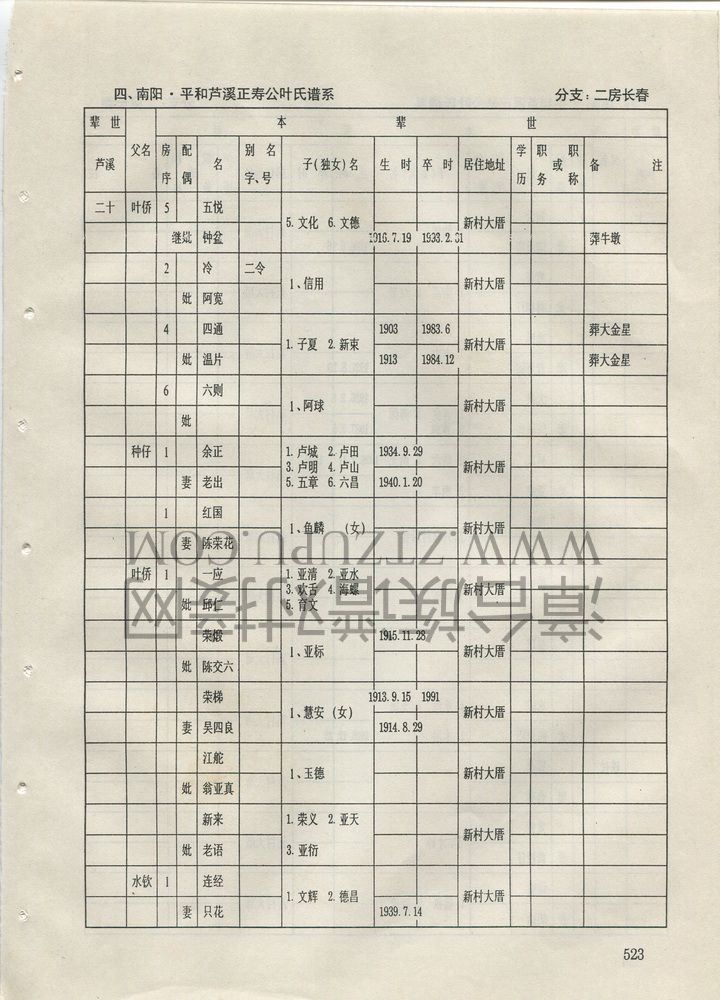 四、南阳·平和芦溪正寿公叶氏谱系 分支：二房长春
辈世 本 辈 世
芦溪 父名 房序 配偶 名 别名字、号 子(独女)名 生时 卒时 居住地址 学历 职务 或 职称 备注
二十 叶侨 5 五悦 5. 文化 6. 文德 新村大厝
继妣 钟盆 1916.7.19 1933.2.31 葬牛墩
2 冷 二令 1、信用 新村大厝
妣 阿宽
4 四通 1. 子夏 2. 新束 1903 1983.6 新村大厝 葬大金星
妣 温片 1913 1984.12 葬大金星
6 六则 1、阿球 新村大厝
妣
种仔 1 余正 1. 卢城 2. 卢田 1934.9.29 新村大厝
3. 卢明 4. 卢山
妻 老出 5. 五章 6. 六昌 1940.1.20
1 红国 1、鱼麟 (女) 新村大厝
妻 陈荣花
叶侨 1 一应 1. 亚清 2. 亚水 新村大厝
3. 欢舌 4. 海螺
妣 邱仁 5. 育文
荣煅 1、亚标 1915.11.28 新村大厝
妣 陈交六
荣梯 1、慧安 (女) 1913.9.15 1991 新村大厝
妻 吴四良 1914.8.29
江舵 1、玉德 新村大厝
妣 翁亚真
新来 1. 荣义 2. 亚天 新村大厝
妣 老语 3. 亚衍
水钦 1 连经 1. 文辉 2. 德昌 新村大厝
妻 只花 1939.7.14
WWW.ZTZUPU.COM
漳台族谱对接网
523